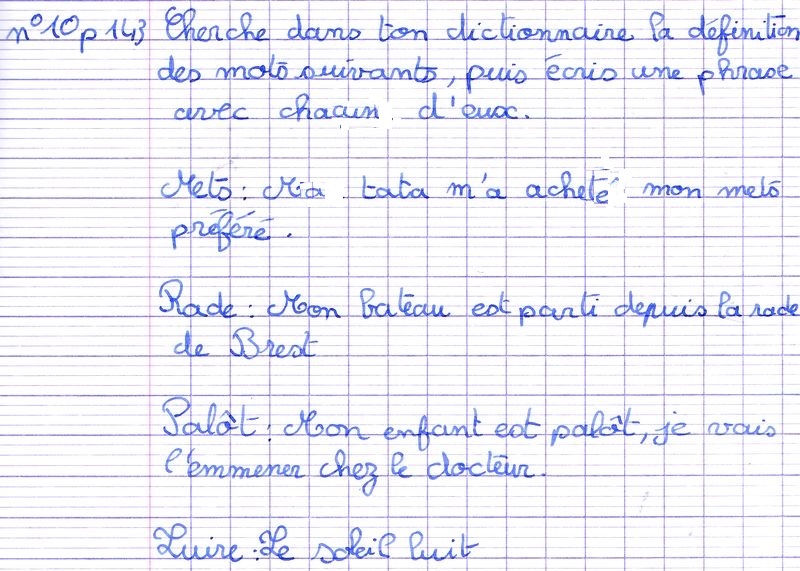 n°10p 143 Cherche dans ton dictionnaire la définition
des mots suivants, puis écris une phrase
avec chacun d'eux.
Mets : Ma tata m'a acheté mon mets
préféré.
Rade : Mon bateau est parti depuis la rade
de Brest
Palôt : Mon enfant est palôt, je vais
l'emmener chez le docteur.
Luire : Le soleil luit